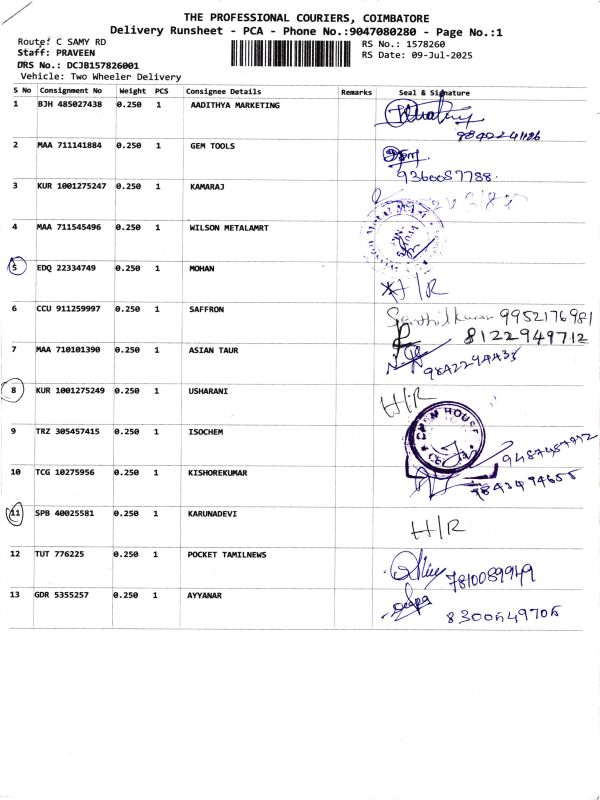 THE PROFESSIONAL COURIERS, COIMBATORE
Delivery Runsheet - PCA - Phone No.:9047080280 - Page No.:1
Route: C SAMY RD
Staff: PRAVEEN
DRS No.: DCJB157826001
Vehicle: Two Wheeler Delivery
RS No.: 1578260
RS Date: 09-Jul-2025
S No Consignment No Weight PCS Consignee Details Remarks Seal & Signature
1 BJH 485027438 0.250 1 AADITHYA MARKETING
9840241126
2 MAA 711141884 0.250 1 GEM TOOLS
9360057788.
3 KUR 1001275247 0.250 1 KAMARAJ
4 MAA 711545496 0.250 1 WILSON METALAMRT
5 EDQ 22334749 0.250 1 MOHAN
H/R
6 CCU 911259997 0.250 1 SAFFRON
Senthil Kumar 9952176981
8122949712
7 MAA 710101390 0.250 1 ASIAN TAUR
9842294435
8 KUR 1001275249 0.250 1 USHARANI
H/R
9 TRZ 305457415 0.250 1 ISOCHEM
CHEM HOUSE
10 TCG 10275956 0.250 1 KISHOREKUMAR
9843494655
11 SPB 40025581 0.250 1 KARUNADEVI
H/R
12 TUT 776225 0.250 1 POCKET TAMILNEWS
7810089949
13 GDR 5355257 0.250 1 AYYANAR
8300549705